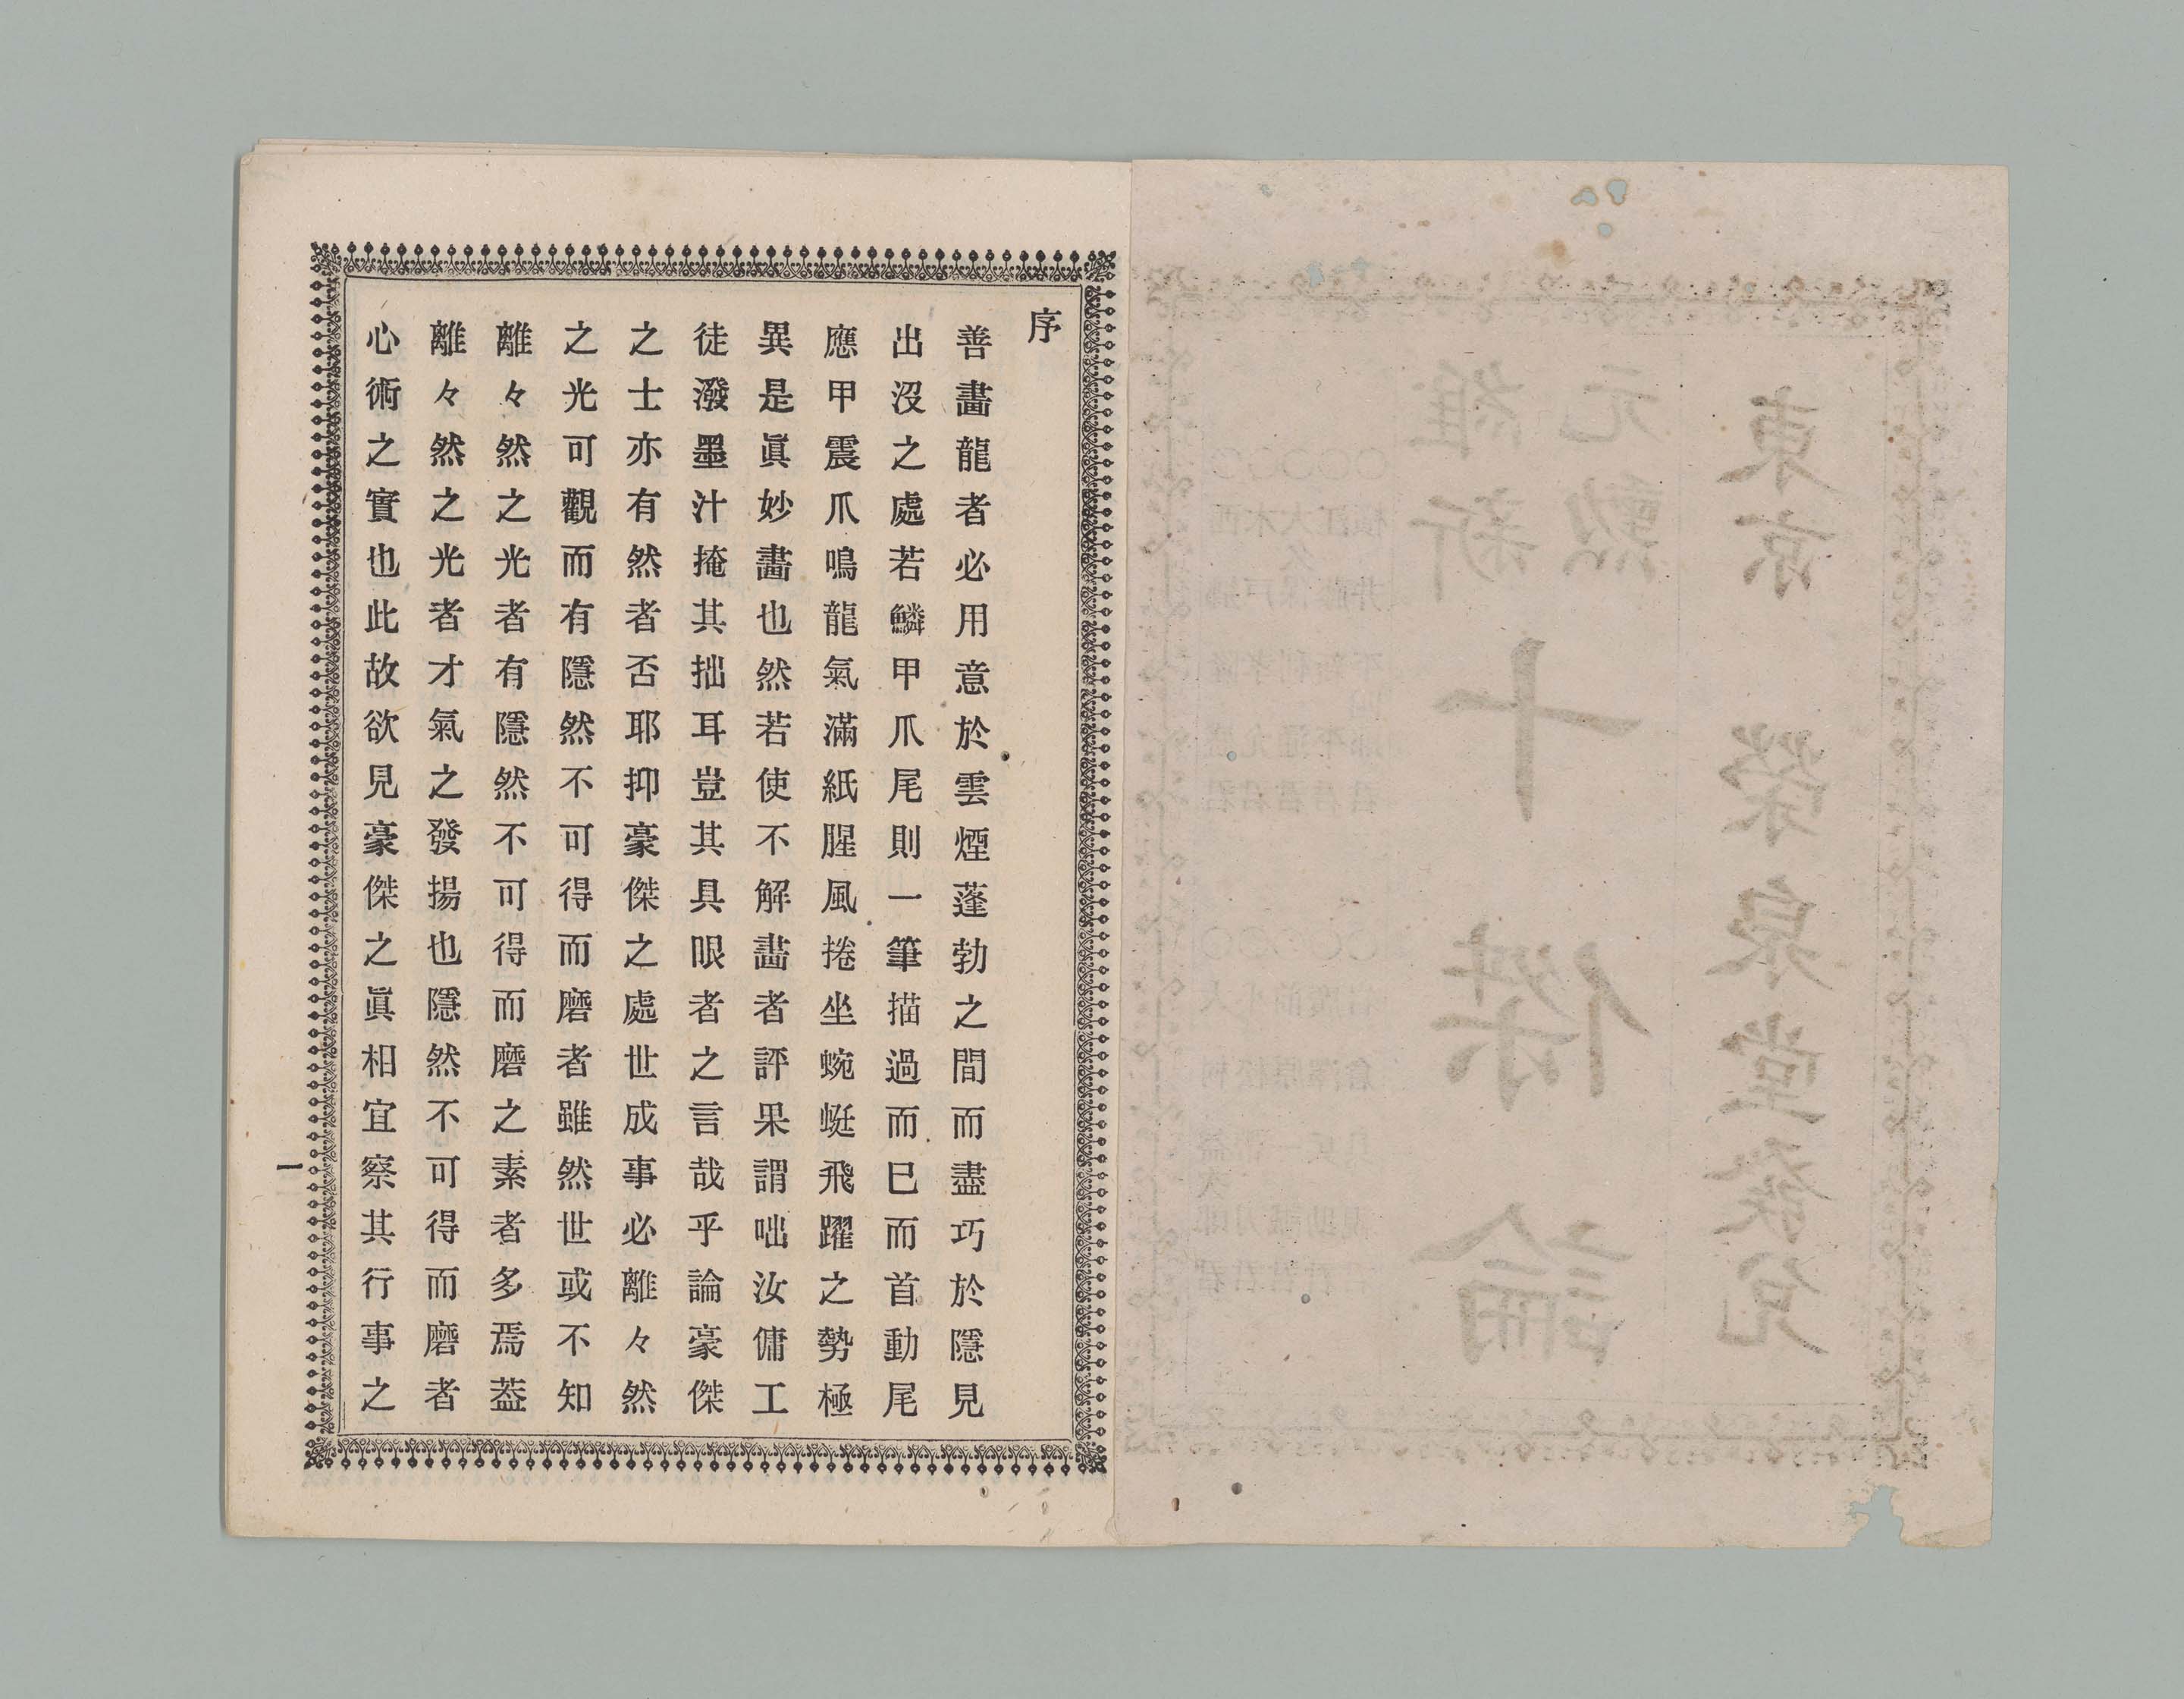 序
善畵龍者必用意於雲煙蓬勃之間而盡巧於隱見
出沒之處若鱗甲爪尾則一筆描過而巳而首動尾
應甲震爪鳴龍氣滿紙腥風捲坐蜿蜒飛躍之勢極
異是眞妙畵也然若使不解畵者評果謂咄汝傭工
徒潑墨汁掩其拙耳豈其具眼者之言哉乎論豪傑
之士亦有然者否耶抑豪傑之處世成事必離々然
之光可觀而有隱然不可得而磨者雖然世或不知
離々然之光者有隱然不可得而磨之素者多焉葢
離々然之光者才氣之發揚也隱然不可得而磨者
心術之實也此故欲見豪傑之眞相宜察其行事之
一
東京 榮泉堂發兌
元勲
維新
十傑論